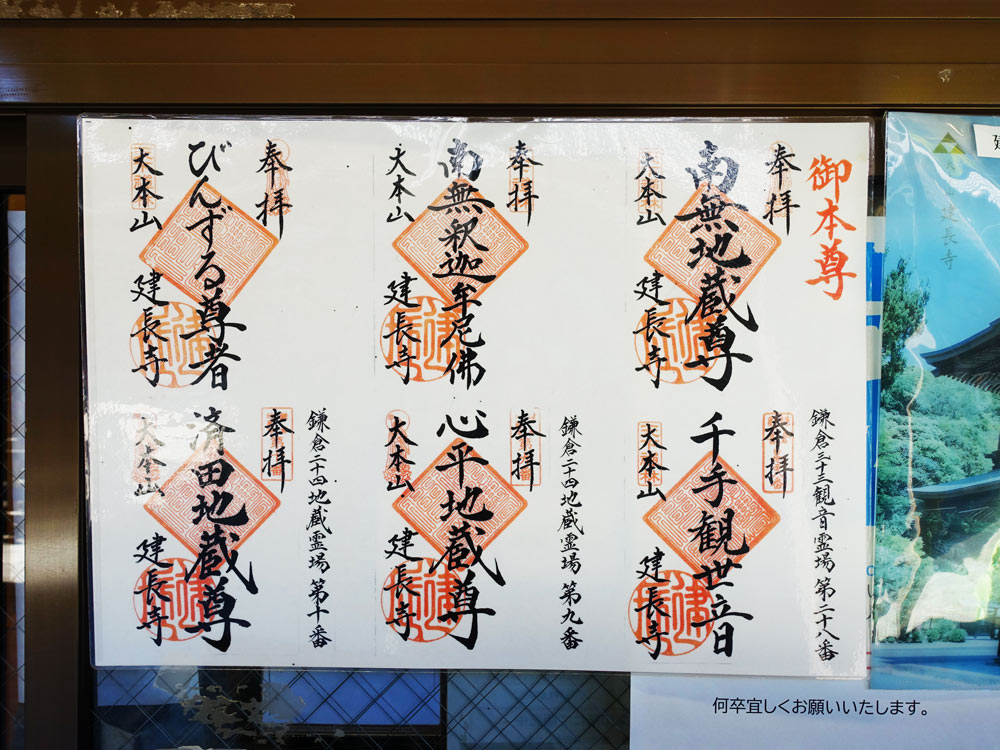 御本尊
奉拝
南無地蔵尊
大本山
建長寺
奉拝
南無釈迦牟尼佛
大本山
建長寺
奉拝
びんずる尊者
大本山
建長寺
鎌倉三十三観音霊場 第二十八番
奉拝
千手観世音
大本山
建長寺
鎌倉二十四地蔵霊場 第九番
奉拝
心平地蔵尊
大本山
建長寺
鎌倉二十四地蔵霊場 第十番
奉拝
済田地蔵尊
大本山
建長寺
建長寺
何卒宜しくお願いいたします。